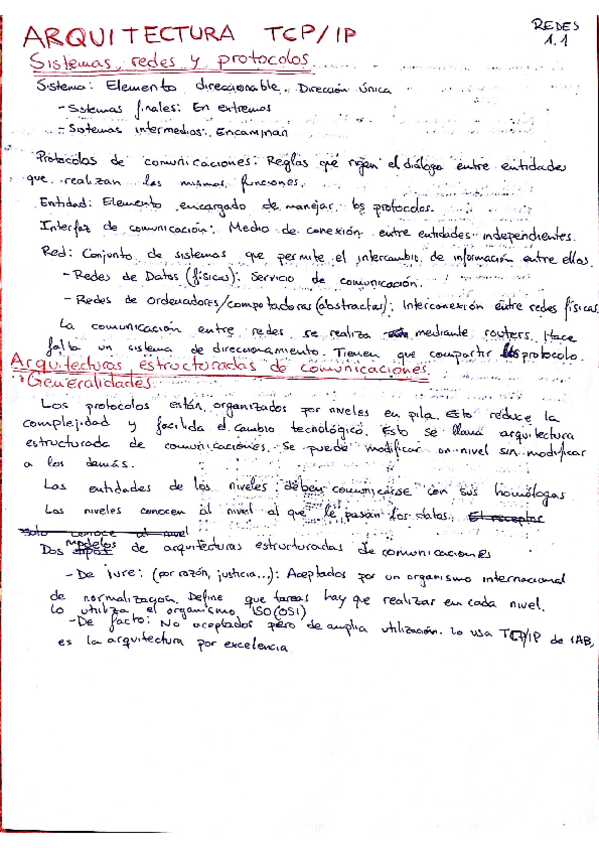 REDES
1.1
ARQUITECTURA TCP/IP
Sistemas, redes y protocolos
Sistema: Elemento direccionable. Dirección única
- Sistemas finales: En extremos
- Sistemas intermedios: Encaminan
Protocolos de comunicaciones: Reglas que rigen el diálogo entre entidades
que realizan las mismas funciones.
Entidad: Elemento encargado de manejar los protocolos.
Interfaz de comunicación: Medio de conexión entre entidades independientes.
Red: Conjunto de sistemas que permite el intercambio de información entre ellos.
- Redes de Datos (físicas): Servicio de comunicación.
- Redes de ordenadores/computadoras (abstractas): Interconexión entre redes físicas.
La comunicación entre redes se realiza mediante routers. Hace
falta un sistema de direccionamiento. Tienen que compartir protocolo.
Arquitecturas estructuradas de comunicaciones
Generalidades
Los protocolos están organizados por niveles en pila. Esto reduce la
complejidad y facilita el cambio tecnológico. Esto se llama arquitectura
estructurada de comunicaciones. Se puede modificar un nivel sin modificar
a los demás.
Las entidades de los niveles deben comunicarse con sus homólogas
Los niveles conocen al nivel al que le pasan los datos. El receptor
solo conoce al nivel
Dos modelos de arquitecturas estructuradas de comunicaciones
- De jure: (por razón, justicia...): Aceptados por un organismo internacional
de normalización. Define que tareas hay que realizar en cada nivel.
Lo utiliza el organismo ISO (OSI)
- De facto: No aceptados pero de amplia utilización. Lo usa TCP/IP de IAB,
es la arquitectura por excelencia